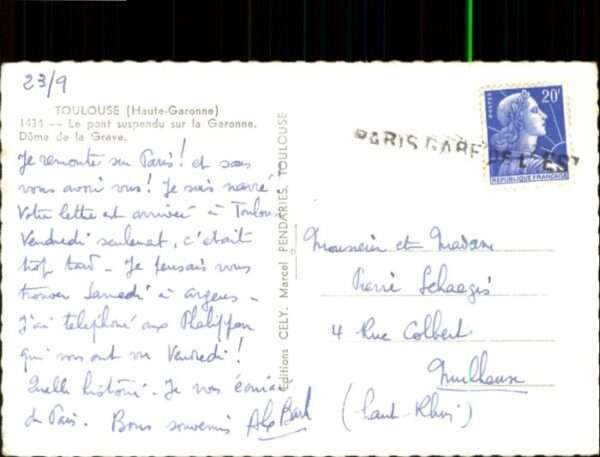 23/9
TOULOUSE (Haute-Garonne)
1434 -- Le pont suspendu sur la Garonne.
Dôme de la Grave.
Je remonte sur Paris ! et sans
vous avoir vus ! Je suis navré
Votre lettre est arrivée à Toulouse
Vendredi seulement, c'était
trop tard - Je pensais vous
trouver Samedi à
J'ai téléphoné aux
qui vous ont vu Vendredi !
Quelle histoire - Je vous écrirai
de Paris. Bons souvenirs
Editions CELY, Marcel PENDARIES, TOULOUSE
POSTES 20F
REPUBLIQUE FRANÇAISE
PARIS GARE DE L'EST
Monsieur et Madame
Pierre
4 Rue Colbert
Mulhouse
(Haut-Rhin)